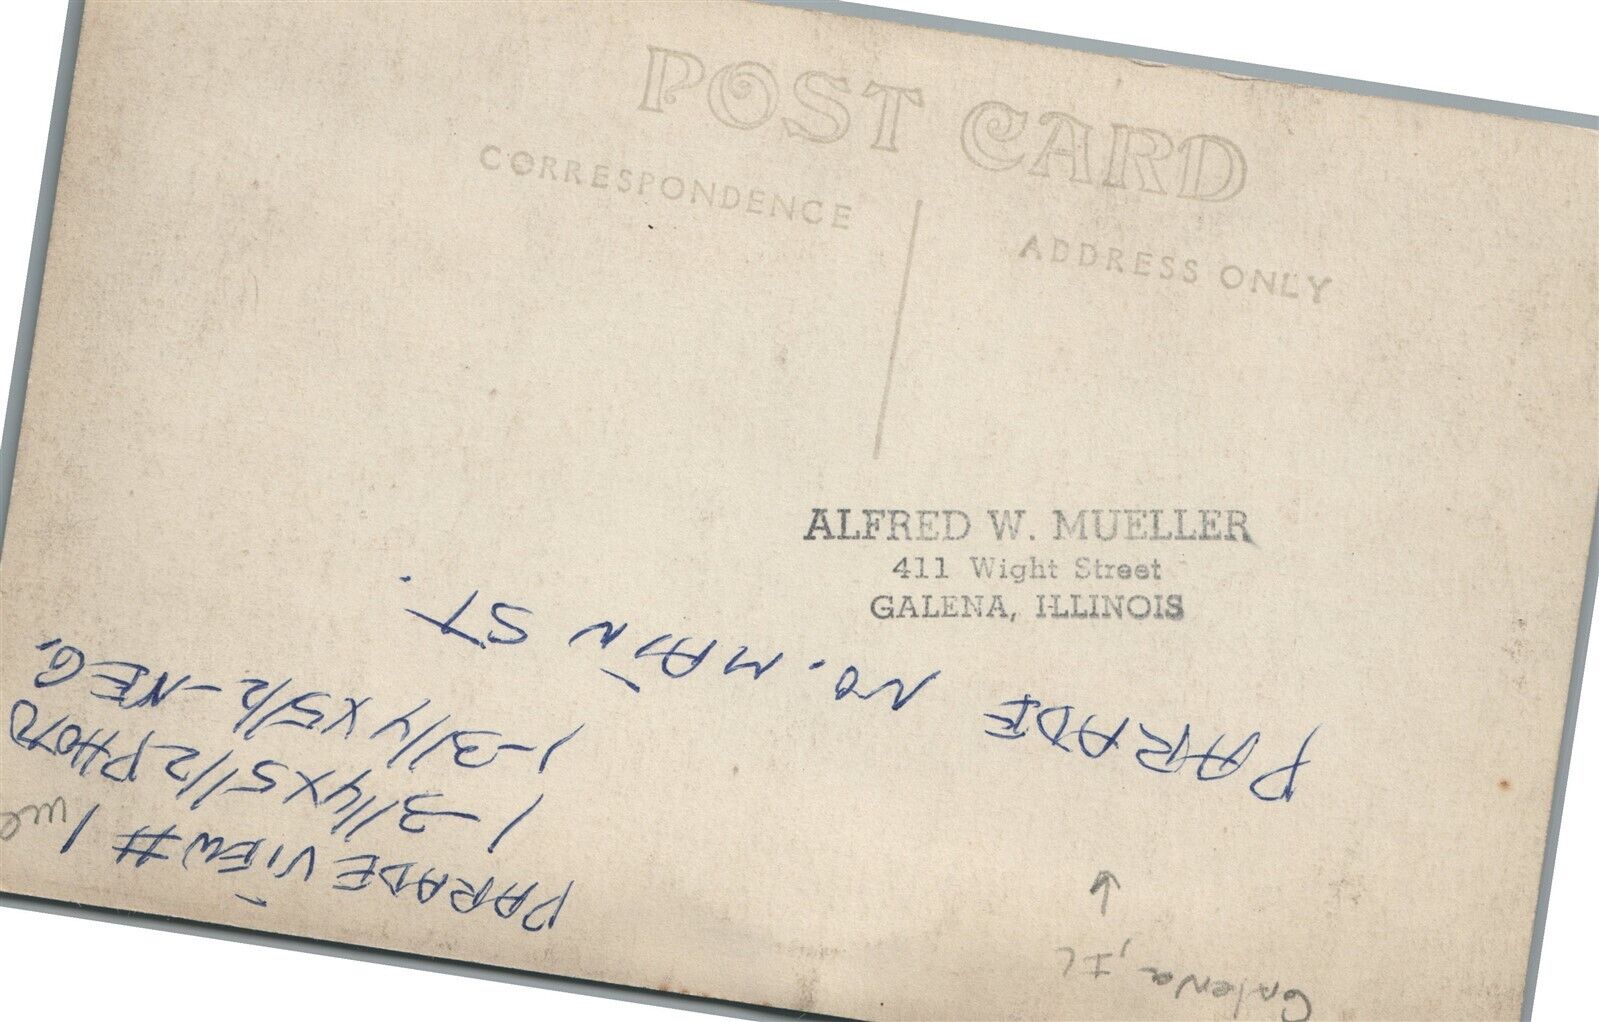 POST CARD
CORRESPONDENCE
ADDRESS ONLY
ALFRED W. MUELLER
411 Wight Street
GALENA, ILLINOIS
Galena, IL
PARADE NO. MAIN ST.
PARADE VIEW # 1
1-3 1/4 X 5 1/2 PHOTO
1-3 1/4 X 5 1/2 - NEG.